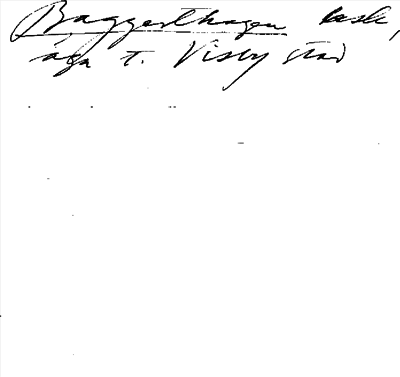 Baggesthagen
äga t. Visby stad